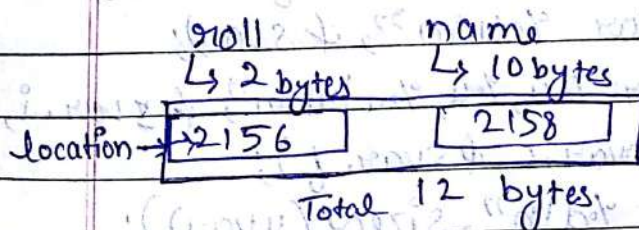 roll name
↳ 2 bytes ↳ 10 bytes
location → 2156 2158
Total 12 bytes.